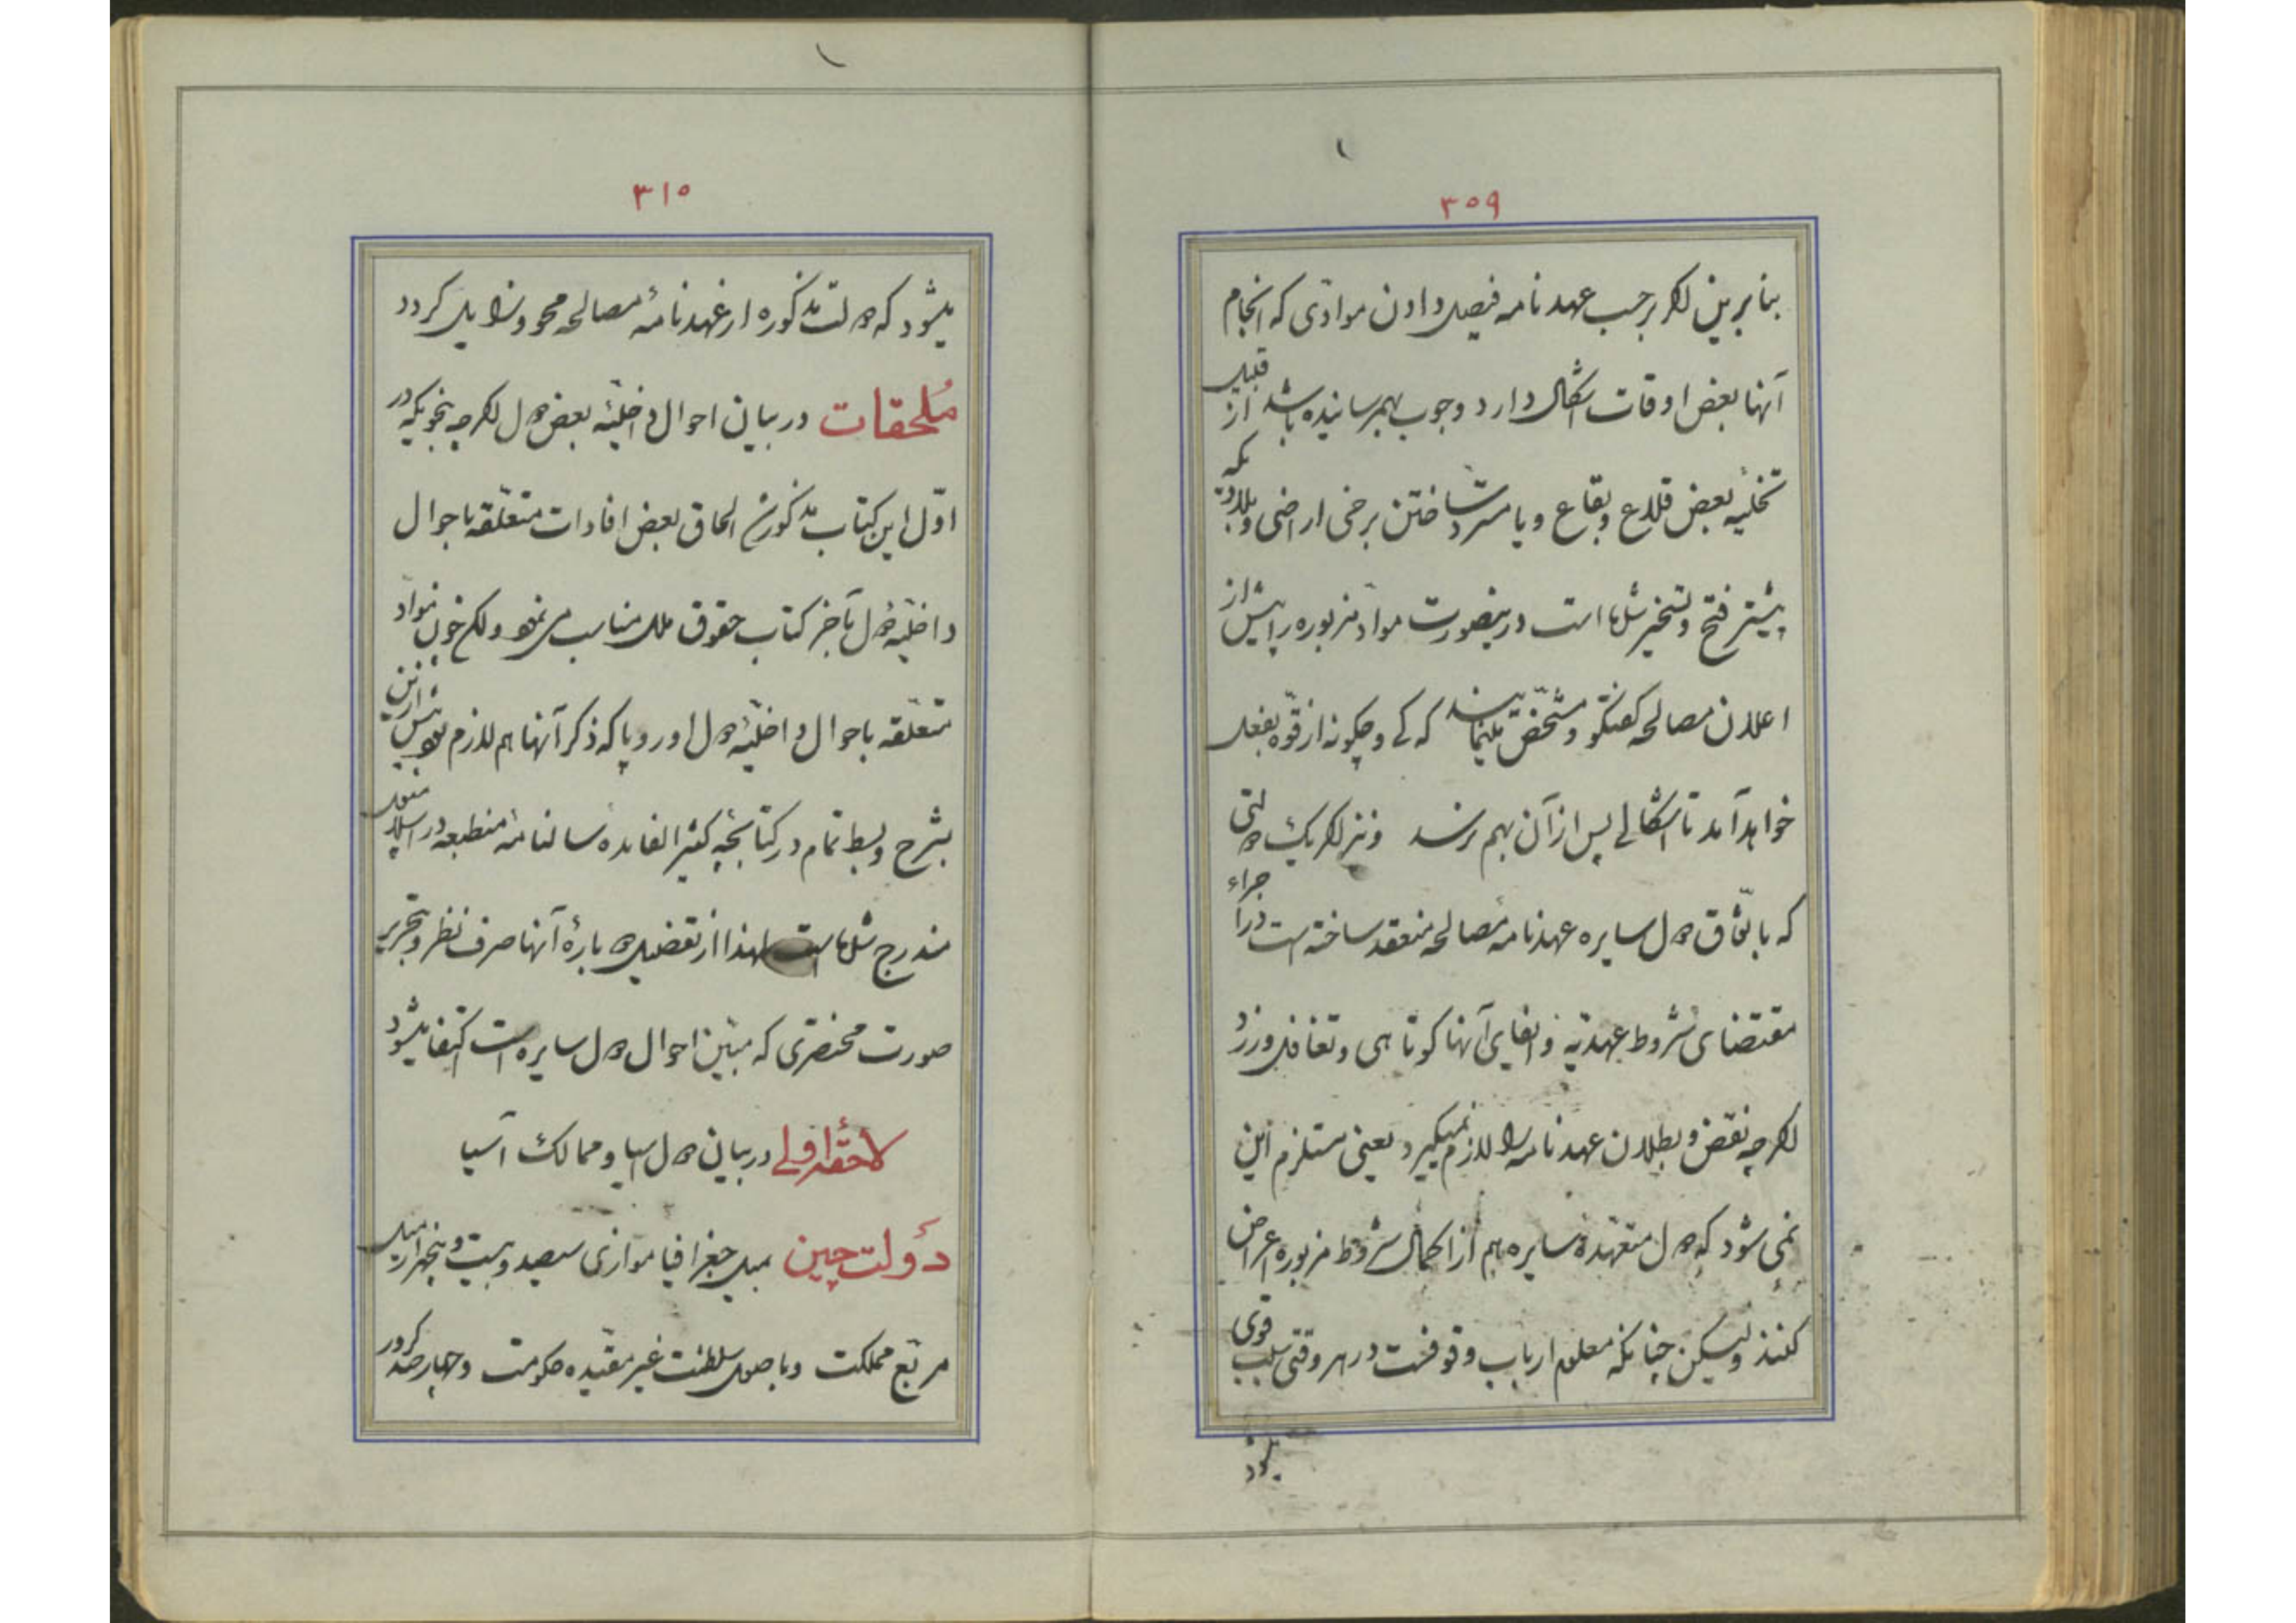 ۳۰۹
بنابرین اگر برحسب عهدنامه فیصل دادن موادّی که انجام
آنها بعض اوقات اشکال دارد وجوب بهمرسانیده باشد از قبیل
تخلیه بعض قلاع و بقاع و یا مسترد ساختن برخی اراضی و بلاد که
پیشتر فتح و تسخیر شده است درینصورت موادّ مزبوره را پیش از
اعلان مصالحه گفتگو و مشخّص مینمایند که کی و چگونه از قوّه بفعل
خواهد آمد تا اشکالی پس از آن بهم نرسد و نیز اگر یک دولتی
که باتّفاق دول سایره عهدنامهٔ مصالحه منعقد ساخته است در اجراء
مقتضای شروط عهدیّه و ایفای آنها کوتاهی و تغافل ورزد
اگرچه نقض و بطلان عهدنامه را لازم نمیگیرد یعنی مستلزم این
نمی شود که دول متعهّدهٔ سایره هم از اکمال شروط مزبوره اعراض
کنند ولیکن چنانکه معلوم ارباب وقوفست در هر وقتی سبب قوی
میشود
۳۱۰
میشود که دولت مذکوره از عهدنامهٔ مصالحه محو و زایل گردد
مُلحقات در بیان احوال داخلیّهٔ بعض دول اگرچه بنحویکه در
اوّل این کتاب مذکور شد الحاق بعض افادات متعلّقه باحوال
داخلیّهٔ دول بآخر کتاب حقوق ملل مناسب می نمود ولکن چون مواد
متعلّقه باحوال داخلیّهٔ دول اوروپا که ذکر آنها هم لازم بود پیش ازین
بشرح و بسط تمام در کتابچهٔ کثیرالفایده سالنامهٔ منطبعه در اسلامبول
مندرج شده است لهذا از تفصیل در بارهٔ آنها صرف نظر و بتحریر
صورت مختصری که مبیّن احوال دول سایره است اکتفا میشود
لاحقهٔ اولی در بیان دول آسیا و ممالک آسیا
دَولت چین میل جغرافیا موازی سیصد و بیست و پنجهزار میل
مربّع مملکت و باصول سلطنت غیر مقیّده حکومت و چهارصد کرور